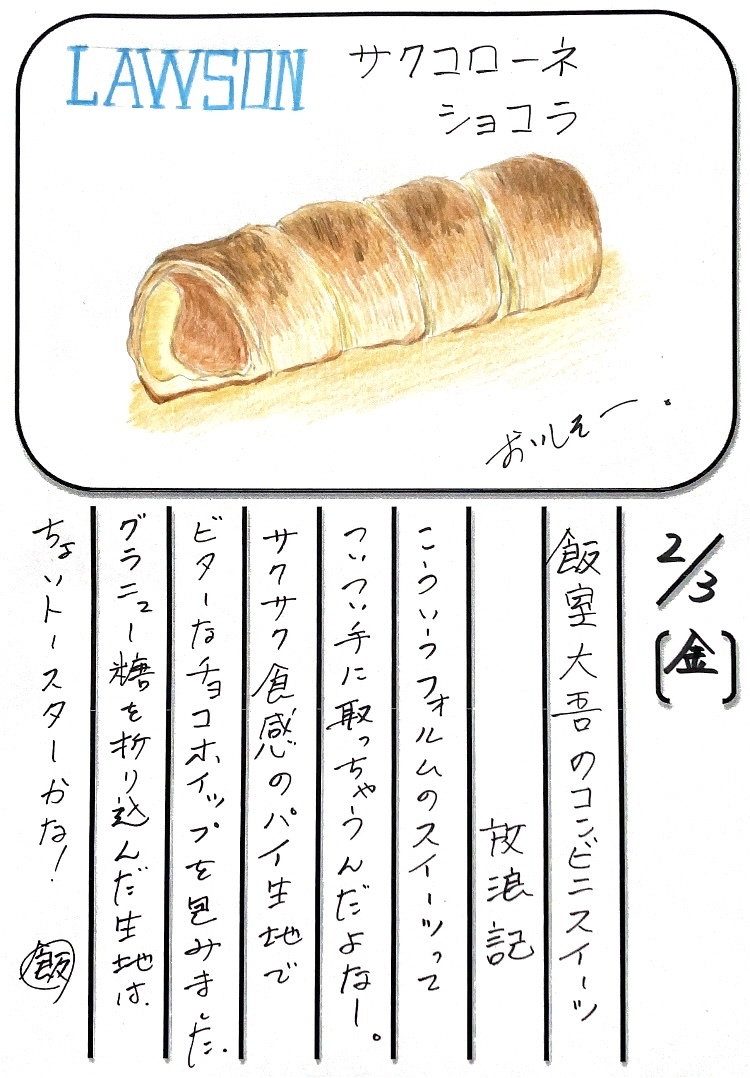 LAWSON
サクコローネ
ショコラ
おいしそー.
2/3
(金)
飯室大吾のコンビニスイーツ
放浪記
こういうフォルムのスイーツって
ついつい手に取っちゃうんだよなー。
サクサク食感のパイ生地で
ビターなチョコホイップを包みました.
グラニュー糖を折り込んだ生地は.
ちょいトースターかな!
飯